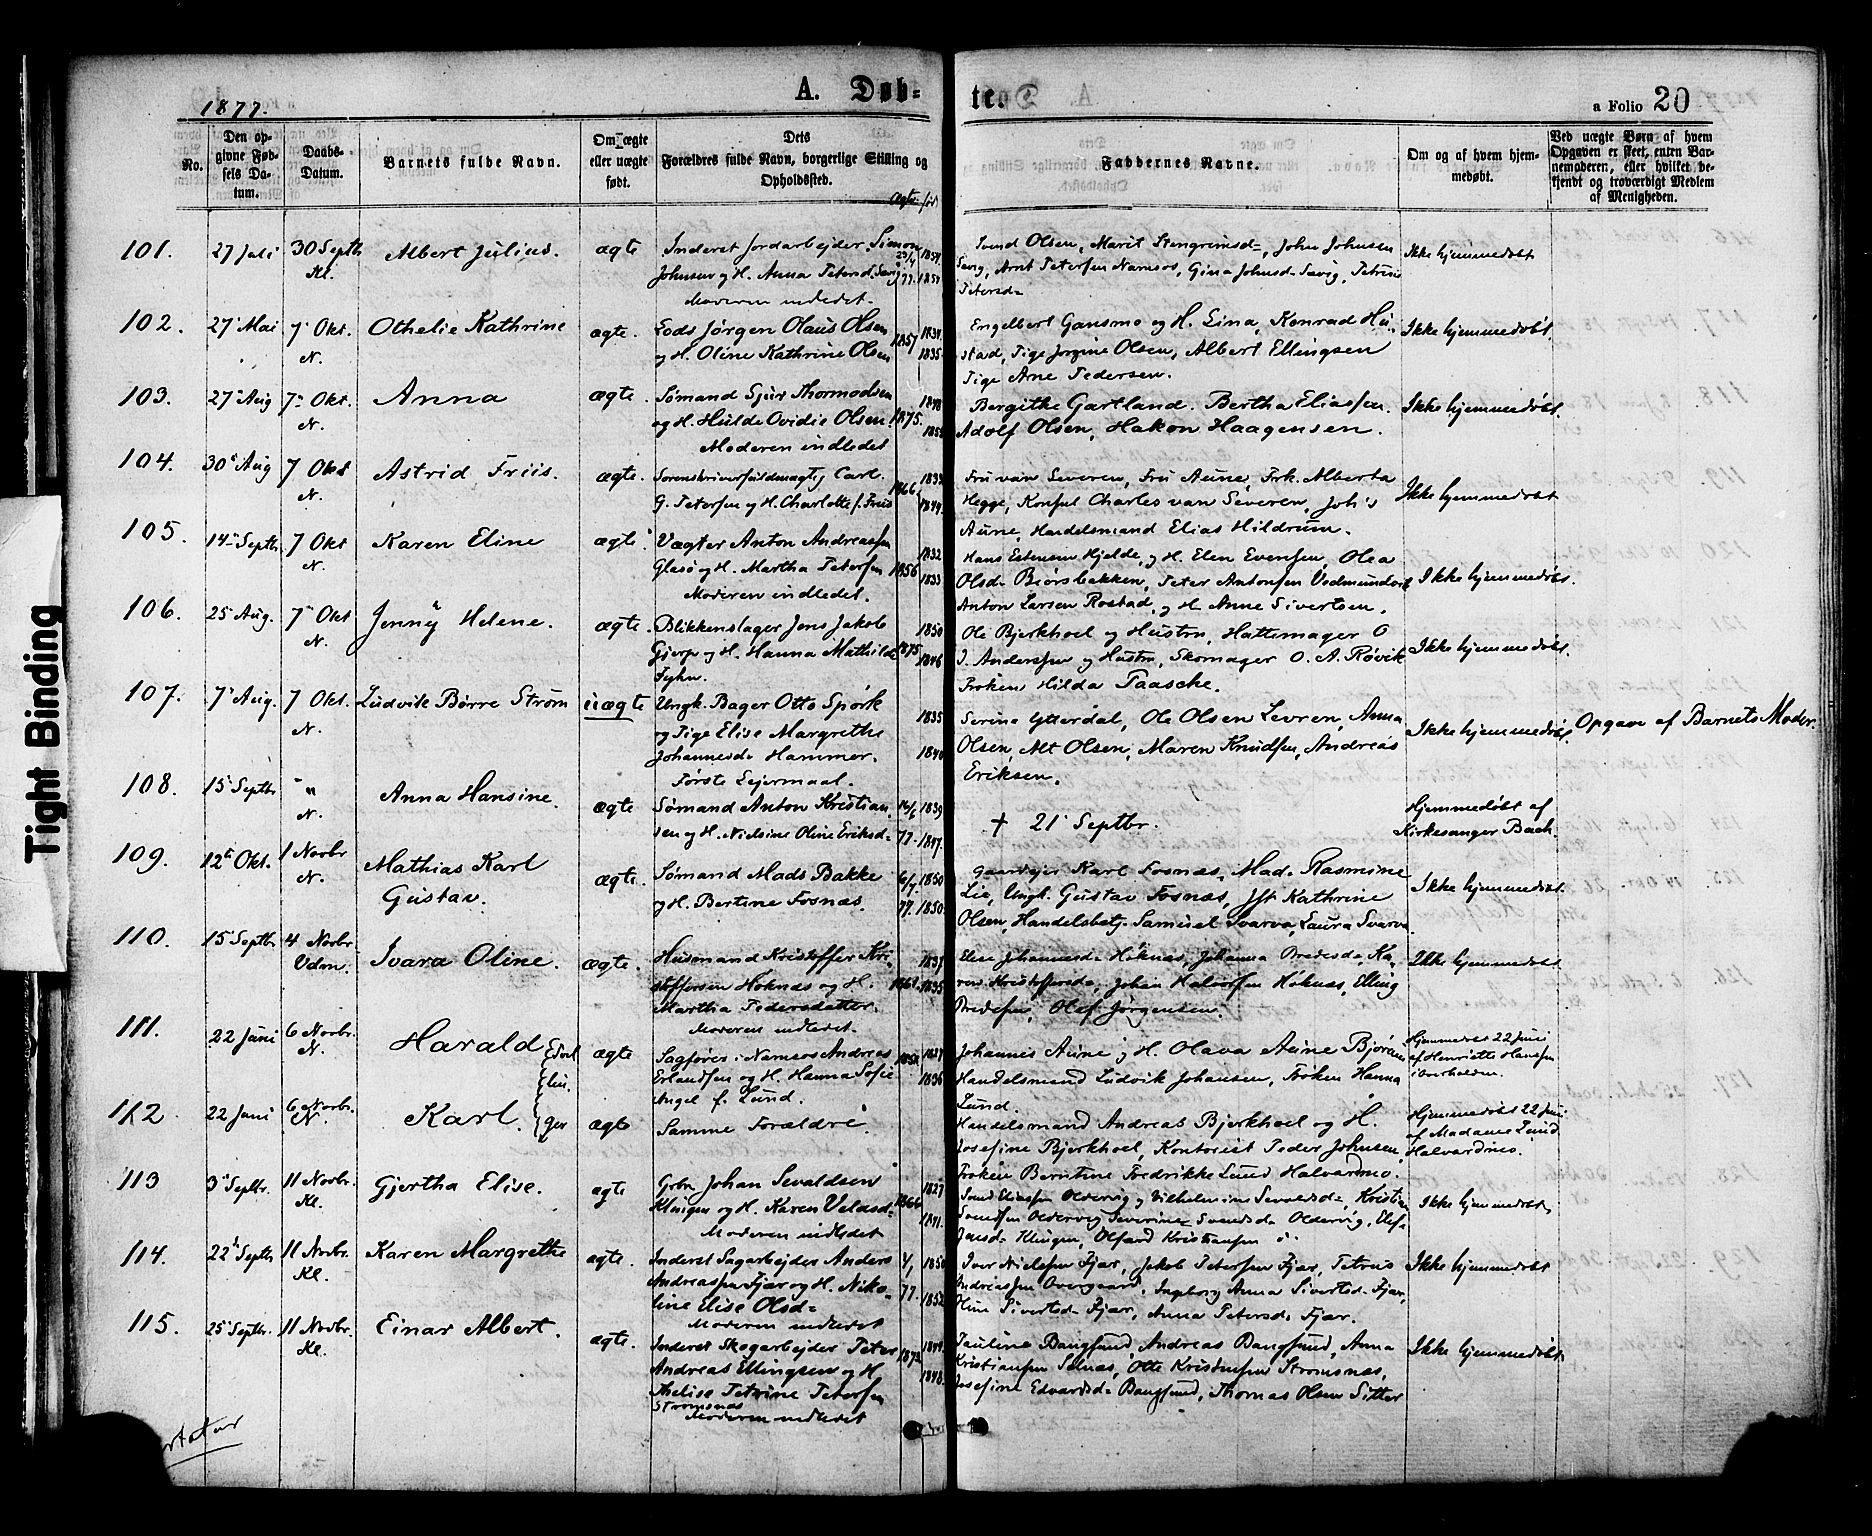 1877.
A. Døb-
te.
a Folio 20
No.
Den op-
givne Fød-
sels Da-
tum.
Daabs-
Datum.
Barnets fulde Navn.
Om ægte
eller uægte
født.
Dets
Forældres fulde Navn, borgerlige Stilling og
Opholdssted.
Faddernes Navne.
Om og af hvem hjem-
medøbt.
Ved uægte Børn af hvem
Opgaven er skeet, enten Bar-
nemoderen, eller hvilket be-
kjendt og troværdigt Medlem
af Menigheden.
101. 27 Juli 30 Septbr Kl. Albert Julius. ægte
Inderst Jordarbejder Simon
Johnsen og H. Anna Petersd. Savig
Moderen indledet.
Svend Olsen, Marit Steingrimsd=, John Johnsen
Savig, Arnt Petersen Namsos, Gina Johnsd= Savig, Petrine
Petersd=
Ikke hjemmedøbt
102. 27 Mai 7 Okt. N. Othelie Kathrine ægte. 1857 1834. 1835.
Lods Jørgen Olaus Olsen
og H. Oline Kathrine Olsen
Engelbert Gansmo og H. Lina, Konrad Hu-
stad, Pige Jorgine Olsen, Albert Ellingsen
Pige Arne Pedersen.
Ikke hjemmedøbt.
103. 27 Aug 7 Okt. N. Anna ægte. 1875.
Sømand Sjur Thormodsen
og H. Hulde Ovidie Olsen
Moderen indledet
Bergithe Gartland. Bertha Eliassen.
Adolf Olsen, Hakon Haagensen.
Ikke hjemmedøbt.
104. 30 Aug 7 Okt N. Astrid Friis. ægte. 1866
Sorenskriverfuldmægtig Carl
G. Petersen og H. Charlotte f. Friis
Fru van Severen, Fru Aune, Frk. Alberta
Hegge, Konsul Charles van Severen, Joh's
Aune, Handelsmand Elias Hildrum.
Ikke hjemmedøbt
105. 14 Septbr. 7 Okt N. Karen Eline ægte 1856 1832 1833
Vægter Anton Andreassen
Glasø og H. Martha Petersen
Moderen indledet.
Hans Estensen Hjelde, og H. Elen Evensen, Olea
Olsd= Bjørsbakken, Peter Antonsen Vedmundvik
Anton Larsen Rostad, og H. Anne Sivertsen.
Ikke hjemmedøbt.
106. 25 Aug. 7 Okt N. Jenny Helene. ægte. 1875 1850 1846
Blikkenslager Jens Jakob
Gjerp og H. Hanna Mathilde
Fyhn.
Ole Bjerkhoel og Hustru, Hattemager O
J. Anderssen og Hustru, Skomager O. A. Røvik
Frøken Hilda Paasche.
Ikke hjemmedøbt.
107. 7 Aug. 7 Okt. N. Ludvik Børre Strøm uægte 1835 1840
Ungk. Bager Otto Spørk
og Pige Elise Margrethe
Johannesd= Hammer.
Første Lejermaal.
Serina Ytterdal, Ole Olsen Levren, Anna
Olsen, Alt Olsen, Maren Knudsen, Andreas
Eriksen.
Ikke hjemmedøbt. Opgave af Barnets Moder.
108. 15 Septbr " N. Anna Hansine. ægte 77. 1839 1847.
Sømand Anton Kristian-
sen og H. Nielsine Oline Eriksd=
† 21 Septbr.
Hjemmedøbt af
Kirkesanger Bach.
109. 12 Okt. 1 Novbr N. Mathias Karl
Gustav. ægte. 6/7 77. 1850 1850.
Sømand Mads Bakke
og H. Bertine Fosnæs.
Gaardejer Karl Fosnæs, Mad. Rasmine
Lie, Ungk. Gustav Fosnæs, Jfr Kathrine
Olsen, Handelsbetj. Samuel Svarva, Laura Svarva.
Ikke hjemmedøbt
110. 15 Septbr 4 Novbr Vdm. Ivara Oline. ægte.
Husmand Kristoffer Kri-
stoffersen Høknæs og H.
Martha Pedersdatter.
Moderen indledet.
Elise Johannesd= Høknæs, Johanna Bredesd=, Ka-
ren Kristoffersd=, Johan Halvorsen Høknæs, Elling
Bredesen, Olef Jørgensen.
Ikke hjemmedøbt
111. 22 Juni 6 Novbr. N. Harald ægte
Sagfører i Namsos Andreas
Erlandsen og H. Hanna Sofie
Angel f. Lund.
Johannes Aune og H. Olava Aune Bjøråen
Handelsmand Ludvik Johansen, Frøken Hanna
Lund.
Hjemmedøbt 22 Juni
af Henriette Hanssen
112 22 Juni 6 Novbr. N. Karl. ægte
Samme Forældre
Handelsmand Andreas Bjerkhoel og H.
Josefine Bjerkhoel, Kontorist Peder Johnsen,
Frøken Berntine Fredrikke Lund Halvardmo.
Hjemmedøbt 22 Juni
af Madame Lund
Halvardmo.
113 3 Septbr. 11 Novbr. Kl. Gjertha Elise. ægte 1866 1827 1841.
Grbr. Johan Sevaldsen
Klingen og H. Karen Veldsd=
Moderen indledet
Svend Eliassen Oldervig og Vilhelmine Sevaldsd=, Kristian
Svendsen Oldervig, Severine Svendsd= Oldervig, Else
Jensd= Klingen, Olfard Kristiansen
Ikke hjemmedøbt
114. 22 Septbr 11 Novbr. Kl. Karen Margrethe ægte. 77. 1850 1852
Inderst Sagarbejder Anders
Andreassen Fjær og H. Niko-
line Elise Olsd=
Moderen indledet
Iver Nielsen Fjær, Jakob Petersen Fjær, Petrus
Andreassen Overgaard, Ingeborg Anna Sivertsd= Fjær,
Oline Sivertsd= Fjær, Anna Petersd= Fjær.
Ikke hjemmedøbt
115. 25 Septbr. 11 Novbr. Kl. Einar Albert. ægte.
Inderst Skogarbejder Peter
Andreas Ellingsen og H
Thelise Petrine Petersen
Strømsnæs
Moderen indledet
Pauline Bangsund, Andreas Bangsund, Anna
Kristiansen Selnæs, Otte Kristensen Strømsnæs,
Josefine Edvardsd= Bangsund, Thomas Olsen Sitter
Ikke hjemmedøbt
Tight Binding